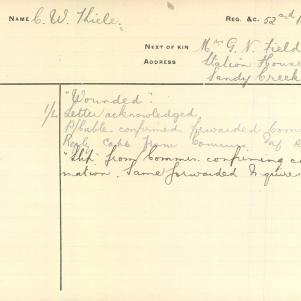 NAME C. W. Thiele. REG. &C. 52nd
NEXT OF KIN Mrs G. N. Field
ADDRESS Station House
Sandy Creek
"Wounded".
1/2 Letter acknowledged.
B/Cable confirmed forwarded
Reply Cable from Commrs.
"Slip" from Commrs. confirming
mation. Same forwarded